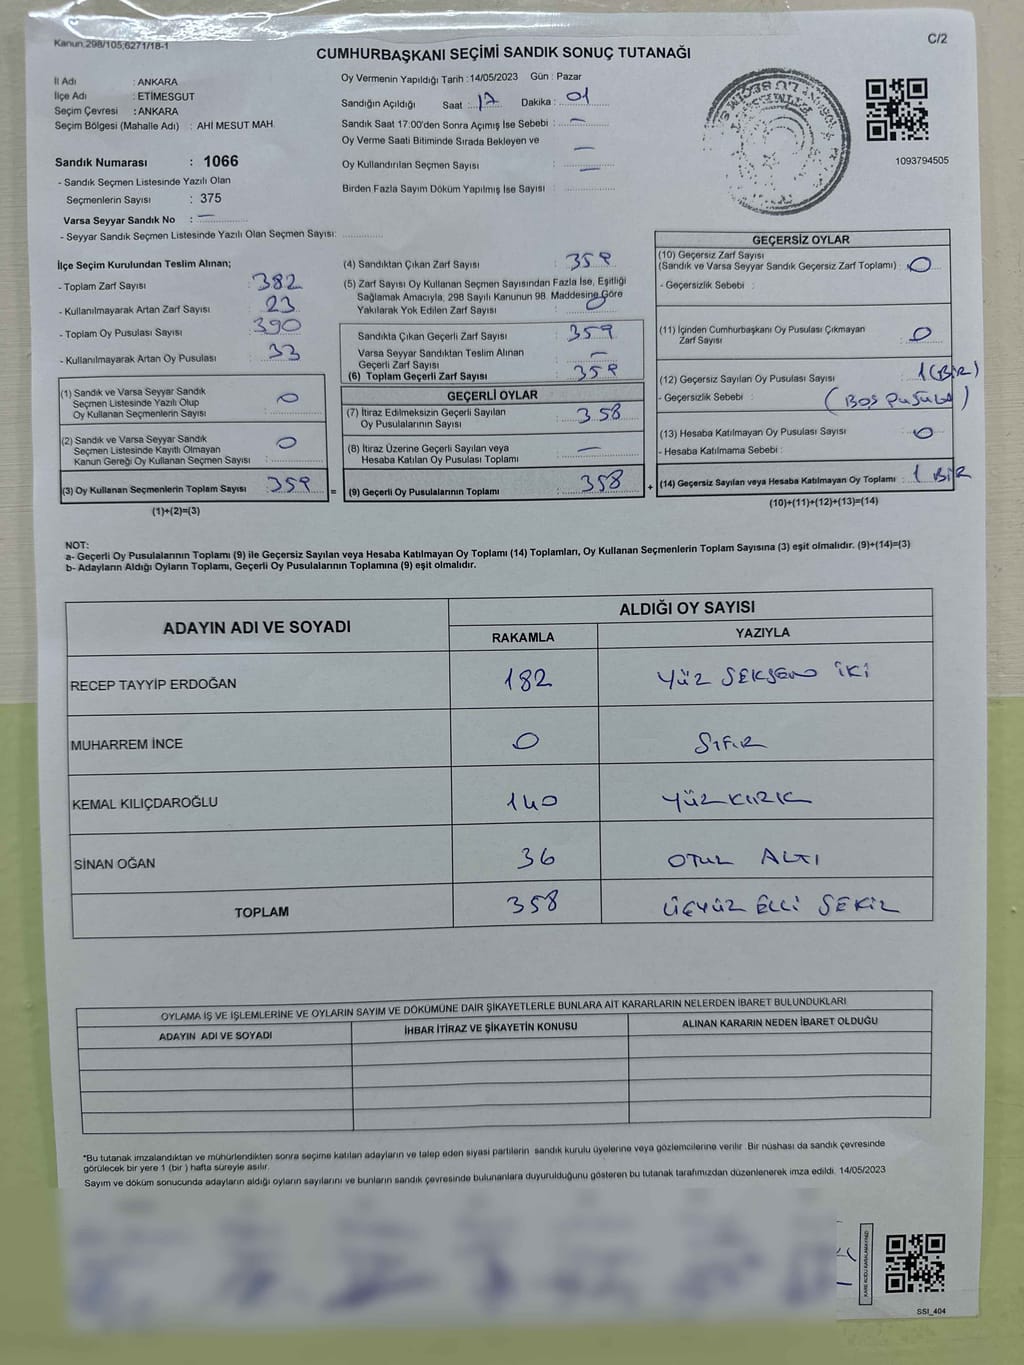 Kanun,298/105,6271/18-1
C/2
CUMHURBAŞKANI SEÇİMİ SANDIK SONUÇ TUTANAĞI
İl Adı : ANKARA
İlçe Adı : ETİMESGUT
Seçim Çevresi : ANKARA
Seçim Bölgesi (Mahalle Adı) : AHİ MESUT MAH.
Sandık Numarası : 1066
- Sandık Seçmen Listesinde Yazılı Olan
Seçmenlerin Sayısı : 375
Varsa Seyyar Sandık No : —
- Seyyar Sandık Seçmen Listesinde Yazılı Olan Seçmen Sayısı: ............
Oy Vermenin Yapıldığı Tarih :14/05/2023 Gün : Pazar
Sandığın Açıldığı Saat : 17 Dakika : 01
Sandık Saat 17:00'den Sonra Açımış İse Sebebi : —
Oy Verme Saati Bitiminde Sırada Bekleyen ve —
Oy Kullandırılan Seçmen Sayısı : —
Birden Fazla Sayım Döküm Yapılmış İse Sayısı : ............
1093794505
İlçe Seçim Kurulundan Teslim Alınan;
- Toplam Zarf Sayısı : 382
- Kullanılmayarak Artan Zarf Sayısı : 23
- Toplam Oy Pusulası Sayısı : 390
- Kullanılmayarak Artan Oy Pusulası : 33
(1) Sandık ve Varsa Seyyar Sandık
Seçmen Listesinde Yazılı Olup
Oy Kullanan Seçmenlerin Sayısı : 0
(2) Sandık ve Varsa Seyyar Sandık
Seçmen Listesinde Kayıtlı Olmayan
Kanun Gereği Oy Kullanan Seçmen Sayısı : 0
(3) Oy Kullanan Seçmenlerin Toplam Sayısı : 359
(1)+(2)=(3)
(4) Sandıktan Çıkan Zarf Sayısı : 359
(5) Zarf Sayısı Oy Kullanan Seçmen Sayısından Fazla İse, Eşitliği
Sağlamak Amacıyla, 298 Sayılı Kanunun 98. Maddesine Göre
Yakılarak Yok Edilen Zarf Sayısı : 0
Sandıkta Çıkan Geçerli Zarf Sayısı : 359
Varsa Seyyar Sandıktan Teslim Alınan
Geçerli Zarf Sayısı : —
(6) Toplam Geçerli Zarf Sayısı : 359
GEÇERLİ OYLAR
(7) İtiraz Edilmeksizin Geçerli Sayılan
Oy Pusulalarının Sayısı : 358
(8) İtiraz Üzerine Geçerli Sayılan veya
Hesaba Katılan Oy Pusulası Toplamı : —
= (9) Geçerli Oy Pusulalarının Toplamı : 358
GEÇERSİZ OYLAR
(10) Geçersiz Zarf Sayısı
(Sandık ve Varsa Seyyar Sandık Geçersiz Zarf Toplamı) : 0
- Geçersizlik Sebebi :
(11) İçinden Cumhurbaşkanı Oy Pusulası Çıkmayan
Zarf Sayısı : 0
(12) Geçersiz Sayılan Oy Pusulası Sayısı : 1 (BİR)
- Geçersizlik Sebebi : (BOŞ PUSULA)
(13) Hesaba Katılmayan Oy Pusulası Sayısı : 0
- Hesaba Katılmama Sebebi :
+ (14) Geçersiz Sayılan veya Hesaba Katılmayan Oy Toplamı : 1 BİR
(10)+(11)+(12)+(13)=(14)
NOT:
a- Geçerli Oy Pusulalarının Toplamı (9) ile Geçersiz Sayılan veya Hesaba Katılmayan Oy Toplamı (14) Toplamları, Oy Kullanan Seçmenlerin Toplam Sayısına (3) eşit olmalıdır. (9)+(14)=(3)
b- Adayların Aldığı Oyların Toplamı, Geçerli Oy Pusulalarının Toplamına (9) eşit olmalıdır.
ADAYIN ADI VE SOYADI ALDIĞI OY SAYISI
RAKAMLA YAZIYLA
RECEP TAYYİP ERDOĞAN 182 YÜZ SEKSEN İKİ
MUHARREM İNCE 0 SIFIR
KEMAL KILIÇDAROĞLU 140 YÜZ KIRK
SİNAN OĞAN 36 OTUZ ALTI
TOPLAM 358 ÜÇYÜZ ELLİ SEKİZ
OYLAMA İŞ VE İŞLEMLERİNE VE OYLARIN SAYIM VE DÖKÜMÜNE DAİR ŞİKAYETLERLE BUNLARA AİT KARARLARIN NELERDEN İBARET BULUNDUKLARI
ADAYIN ADI VE SOYADI İHBAR İTİRAZ VE ŞİKAYETİN KONUSU ALINAN KARARIN NEDEN İBARET OLDUĞU
*Bu tutanak imzalandıktan ve mühürlendikten sonra seçime katılan adayların ve talep eden siyasi partilerin sandık kurulu üyelerine veya gözlemcilerine verilir. Bir nüshası da sandık çevresinde
görülecek bir yere 1 (bir ) hafta süreyle asılır.
Sayım ve döküm sonucunda adayların aldığı oyların sayılarını ve bunların sandık çevresinde bulunanlara duyurulduğunu gösteren bu tutanak tarafımızdan düzenlenerek imza edildi. 14/05/2023
KARE KODU KARALAMAYINIZ!
SSI_404